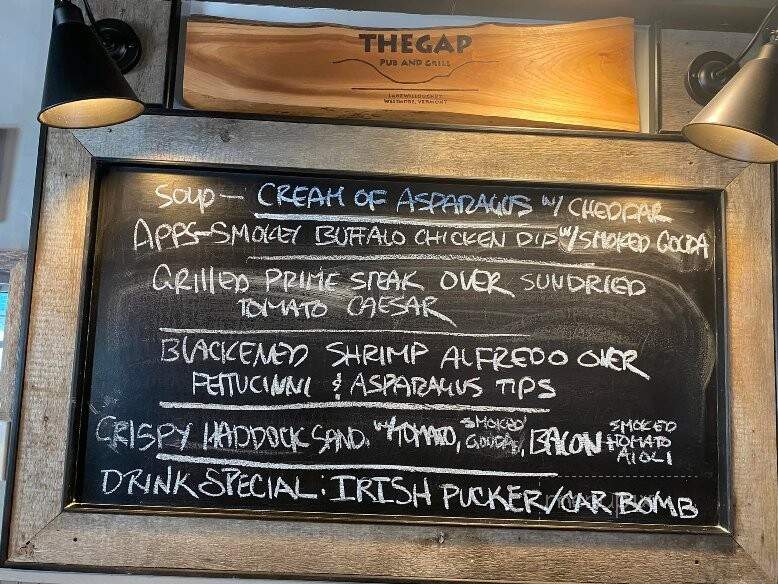 THEGAP
PUB AND GRILL
LAKE WILLOUGHBY
WESTMORE, VERMONT
SOUP – CREAM OF ASPARAGUS W/ CHEDDAR
APPS–SMOKEY BUFFALO CHICKEN DIP W/SMOKED GOUDA
GRILLED PRIME STEAK OVER SUNDRIED
TOMATO CAESAR
BLACKENED SHRIMP ALFREDO OVER
FETTUCINNI & ASPARAGUS TIPS
CRISPY HADDOCK SAND. W/TOMATO, SMOKED GOUDA, BACON SMOKED TOMATO AIOLI
DRINK SPECIAL: IRISH PUCKER/CAR BOMB